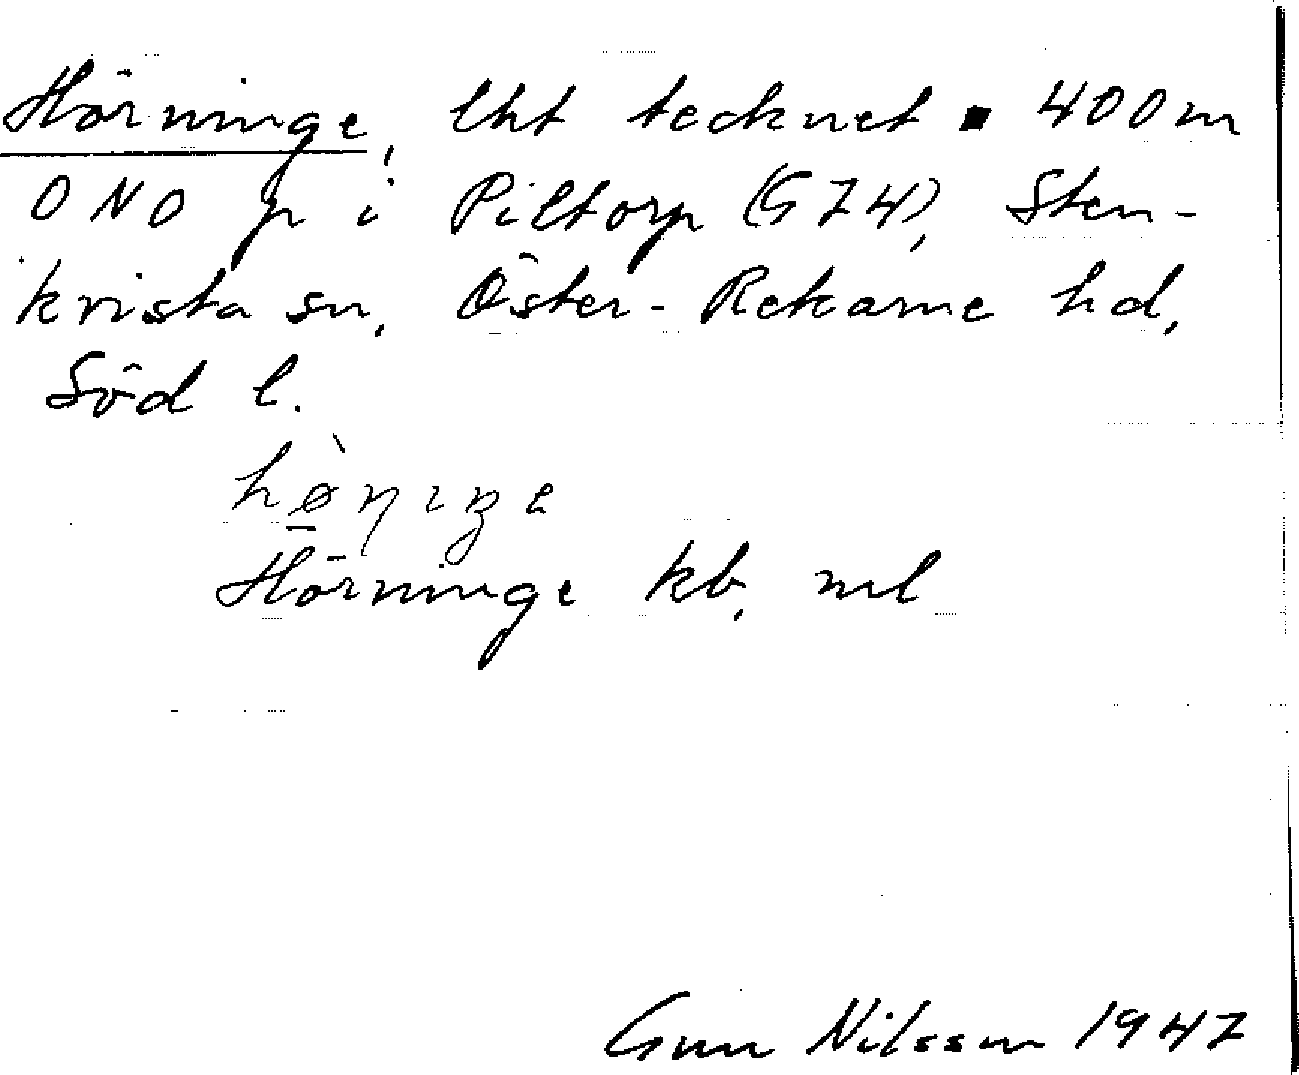 Hörninge, lht tecknet ▪ 400m
ONO p i Piltorp (G74), Sten-
kvista sn, Öster-Rekarne hd,
Söd l.
hø̀ŋıŋe
Hörninge kb, ml
Gun Nilsson 1947